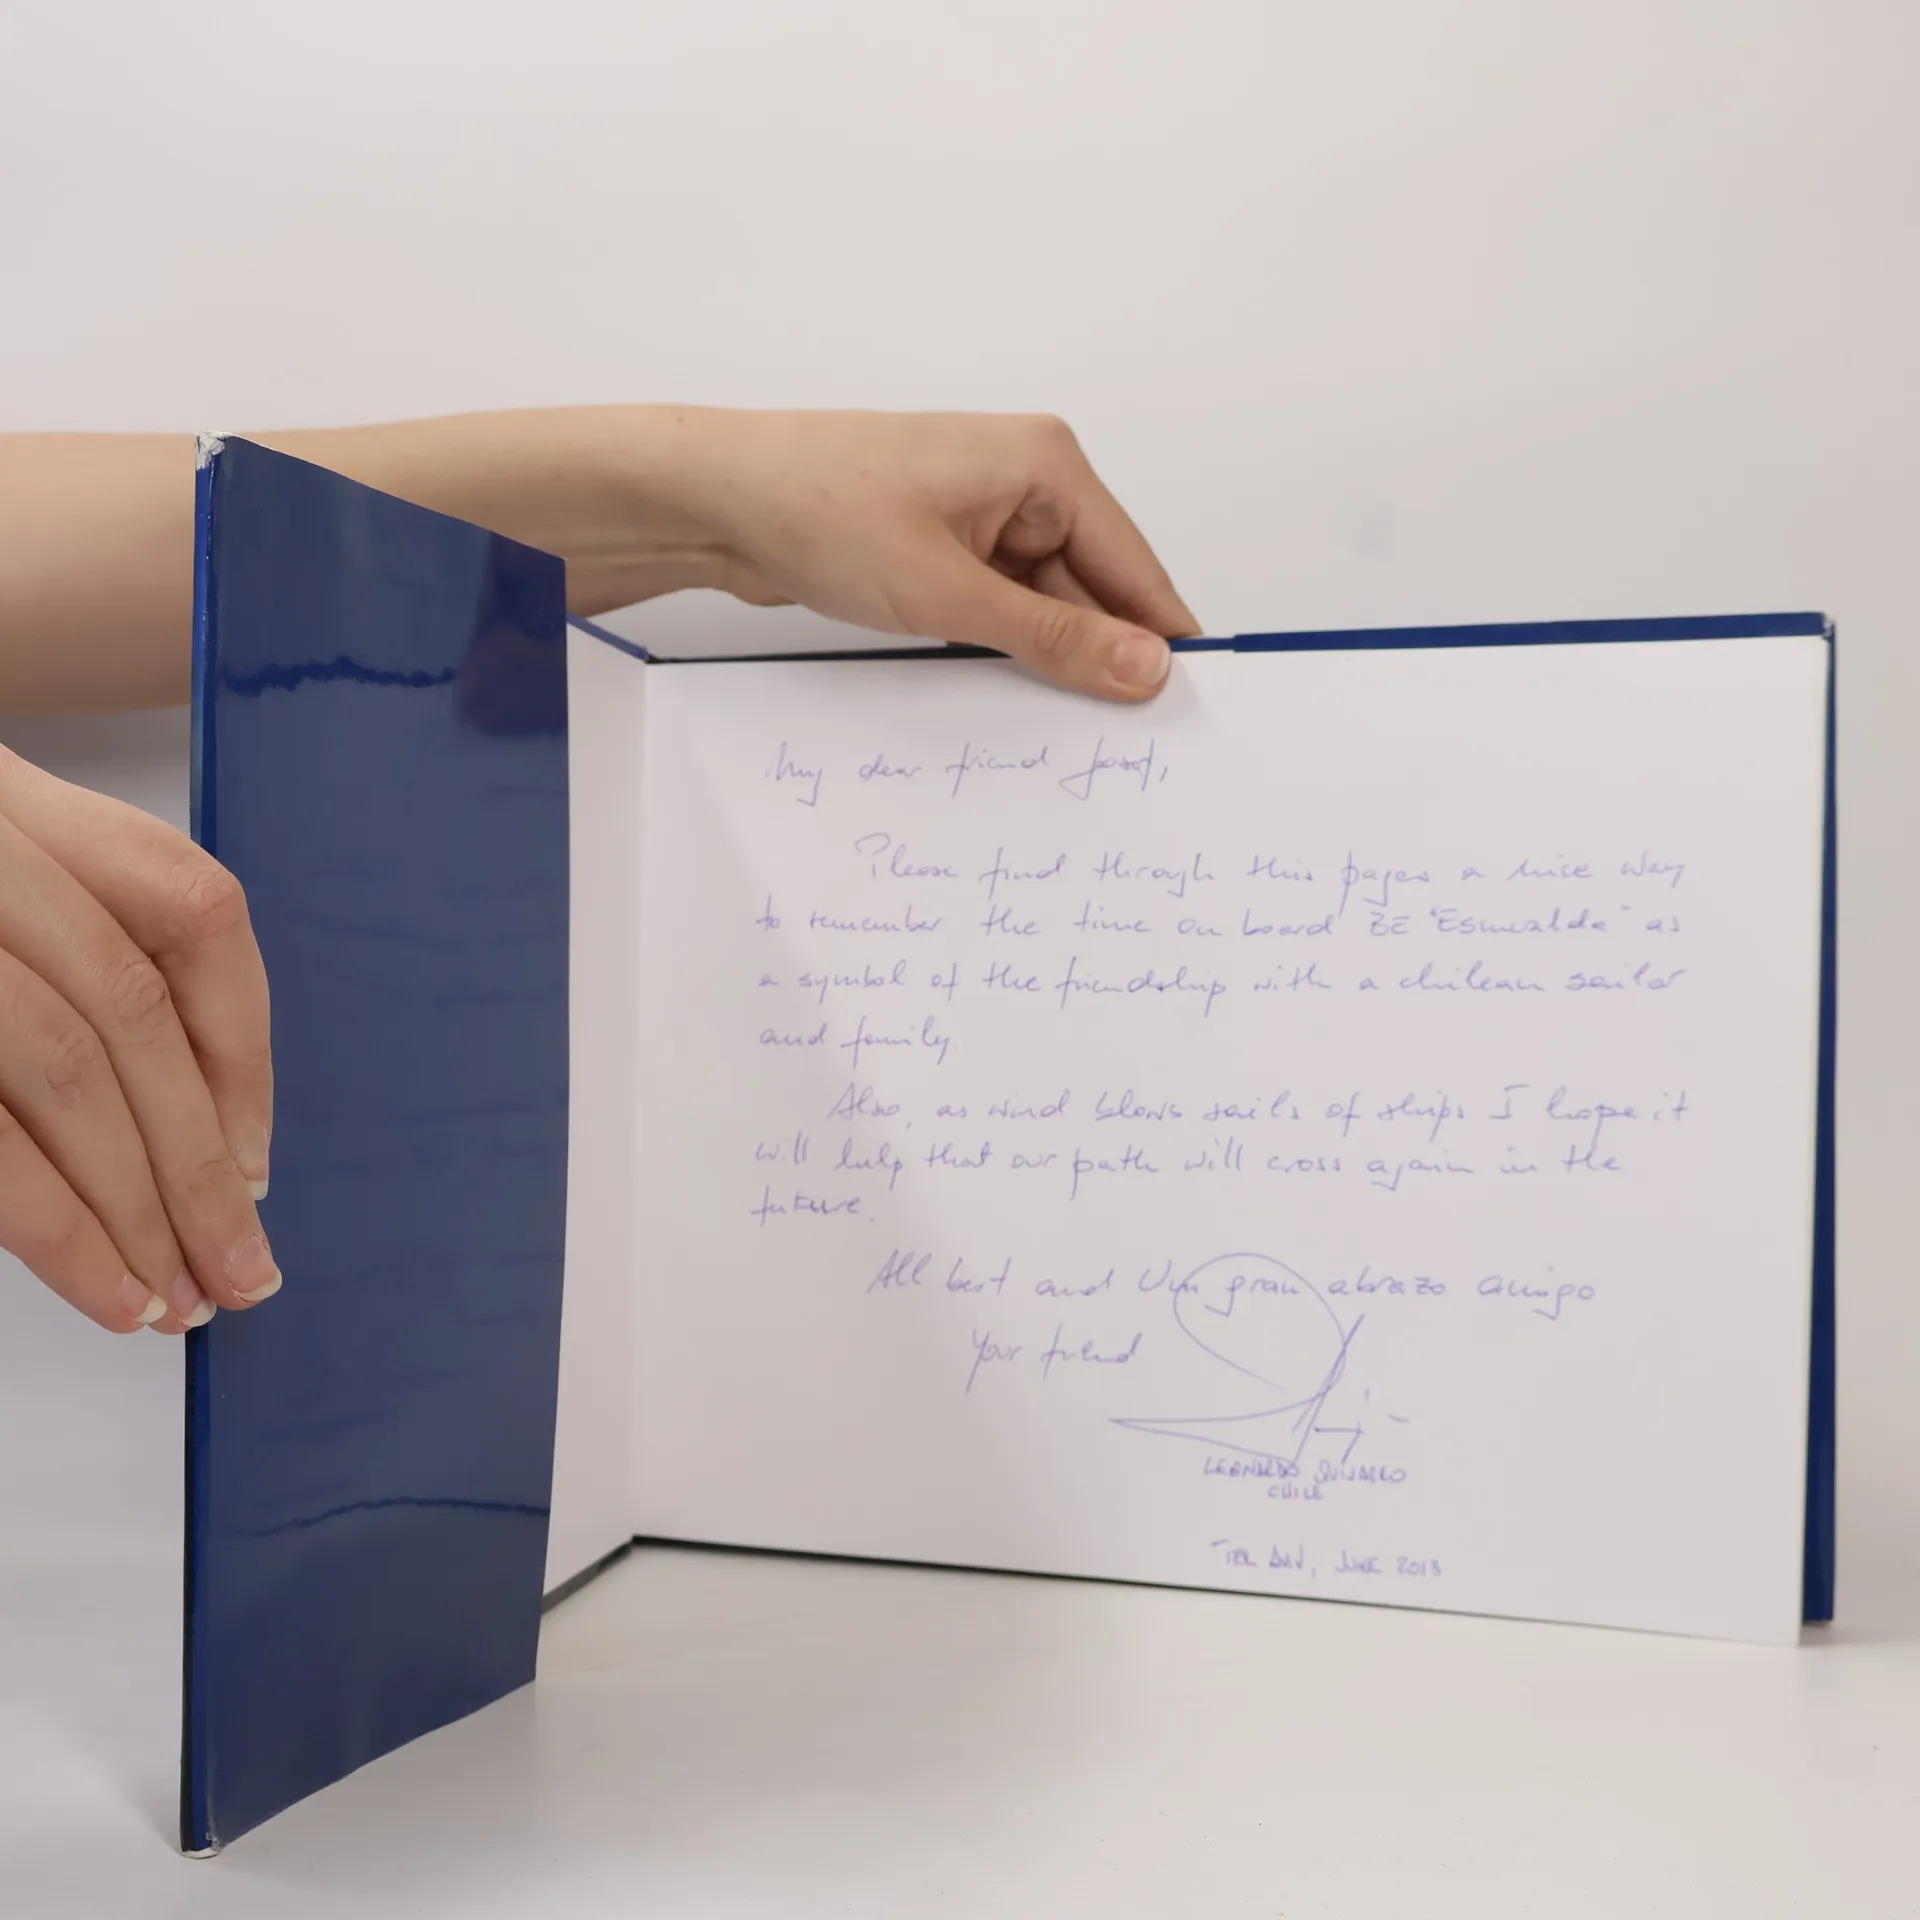 My dear friend Josef,
Please find through this pages a nice way
to remember the time on board BE "Esmeralda" as
a symbol of the friendship with a chilean sailor
and family.
Also, as wind blows sails of ships I hope it
will help that our path will cross again in the
future.
All best and Un gran abrazo amigo
Your friend
LEONARDO
CHILE
TEL AVIV, JUNE 2013